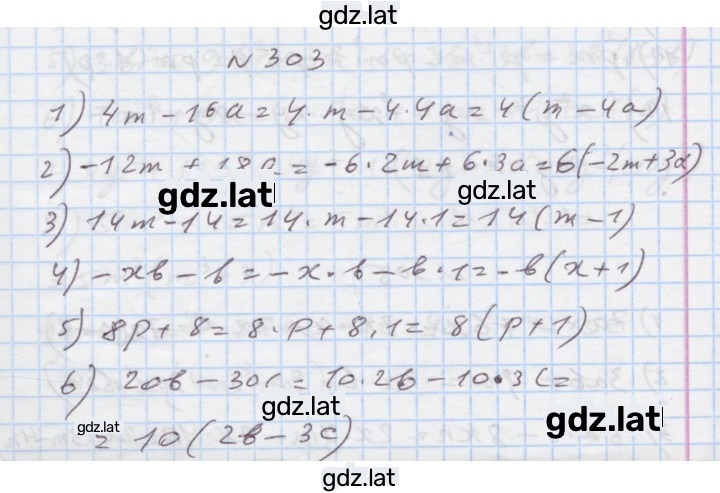 gdz.lat
N 303
1) 4m - 16a = 4 · m - 4 · 4a = 4(m - 4a)
2) -12m + 18a = -6 · 2m + 6 · 3a = 6(-2m + 3a)
gdz.lat
gdz.lat
3) 14m - 14 = 14 · m - 14 · 1 = 14(m - 1)
4) -xb - b = -x · b - b · 1 = -b(x + 1)
5) 8p + 8 = 8 · p + 8 · 1 = 8(p + 1)
6) 20b - 30c = 10 · 2b - 10 · 3c =
gdz.lat
gdz.lat
gdz.lat
= 10(2b - 3c)
gdz.lat